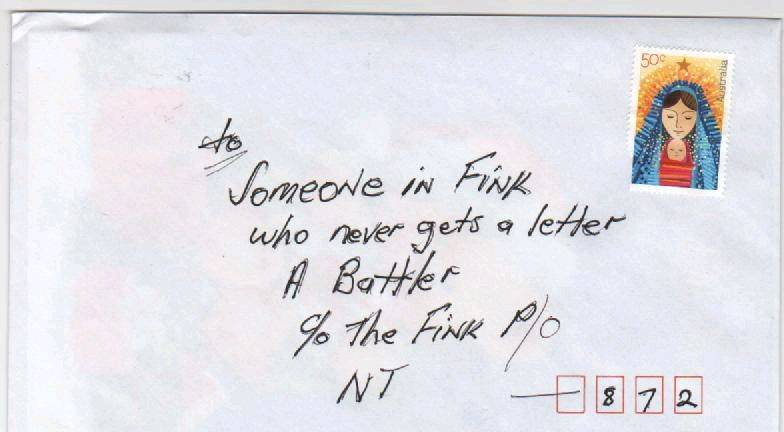 50c
Australia
to
Someone in Fink
who never gets a letter
A Battler
c/o The Fink P/O
NT
872